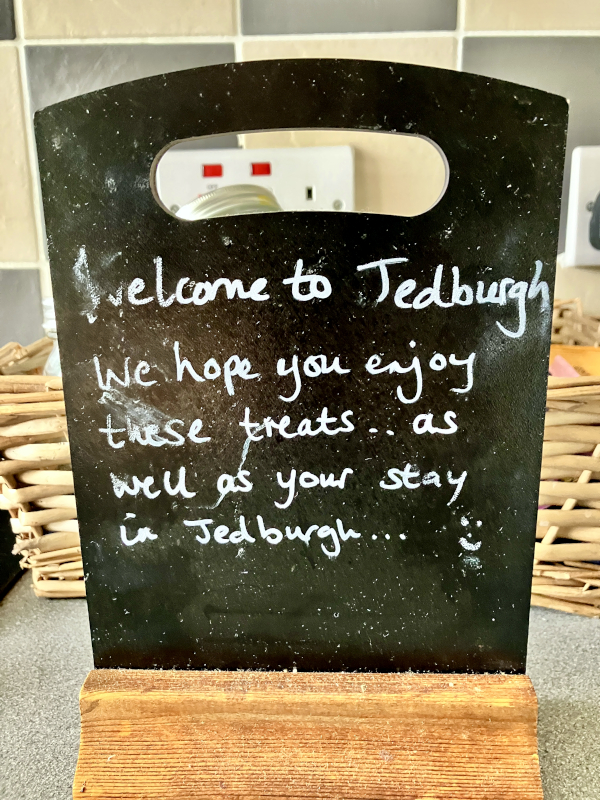 Welcome to Jedburgh
We hope you enjoy
these treats.. as
well as your stay
in Jedburgh...